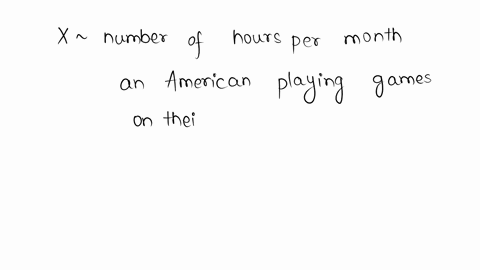 X ~ number of hours per month
an American playing games
on thei